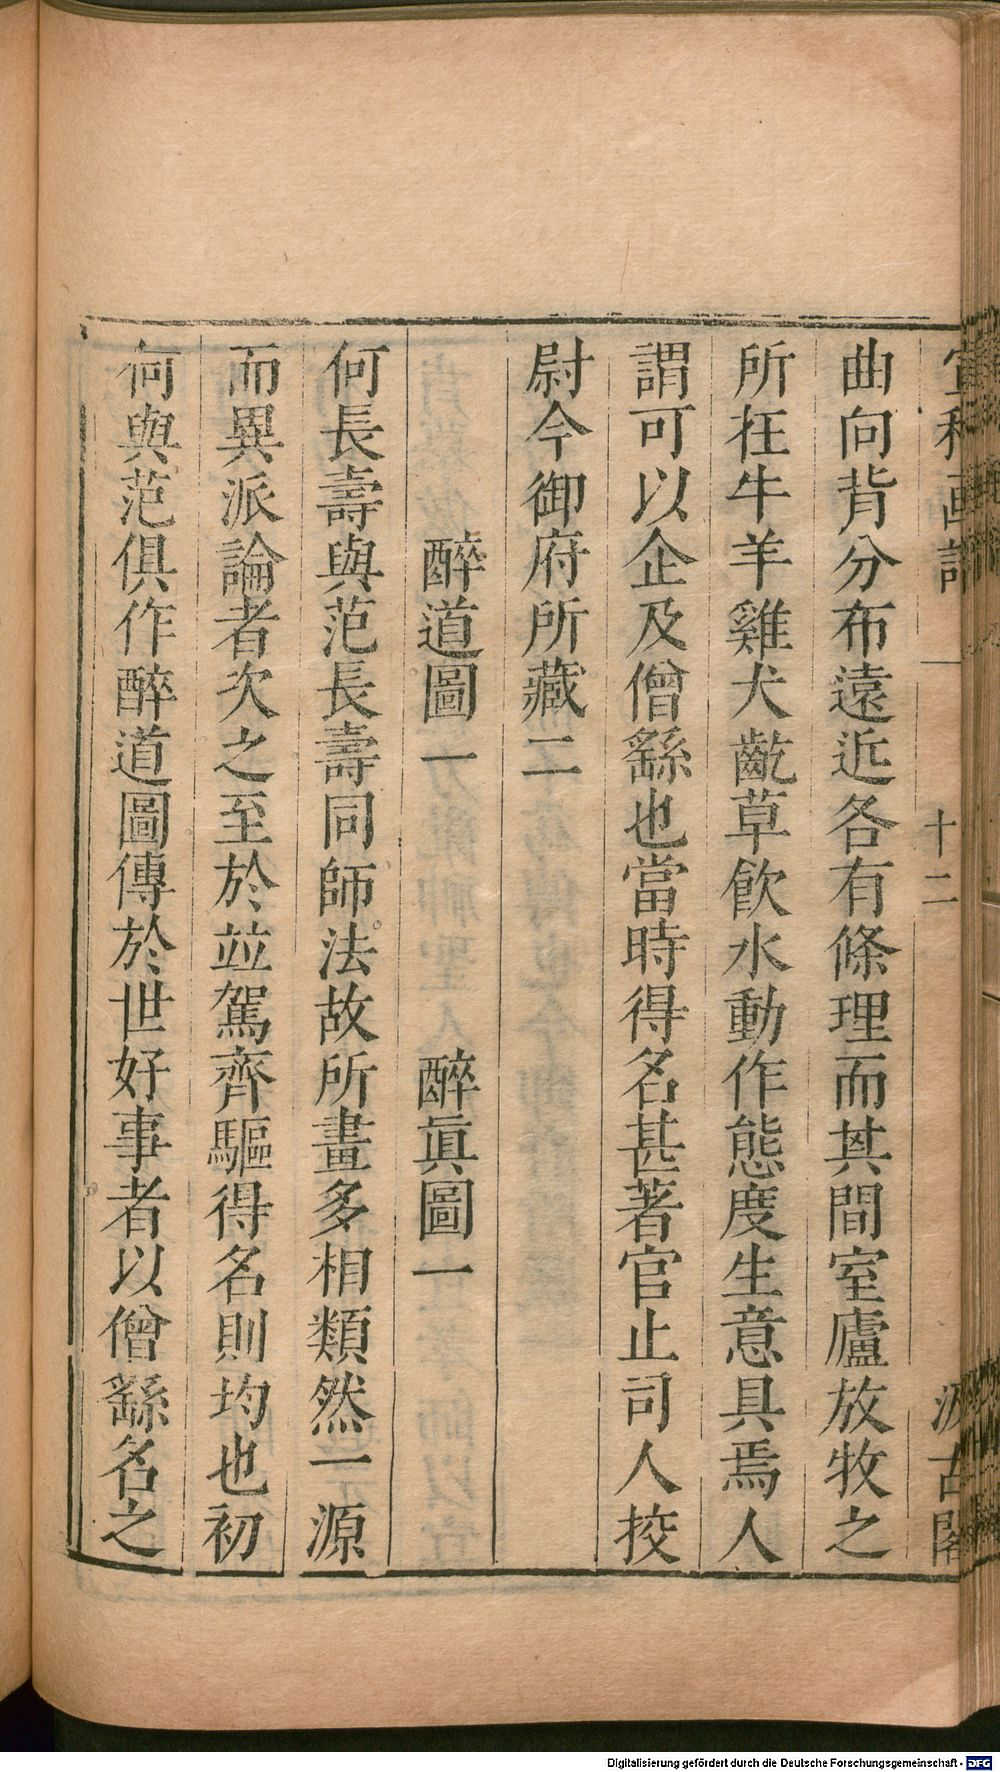 宣和画譜 一 十二 汲古閣
曲向背分布遠近各有條理而其間室廬放牧之
所在牛羊雞犬齕草飲水動作態度生意具焉人
謂可以企及僧繇也當時得名甚著官止司人挍
尉今御府所藏二
醉道圖一 醉眞圖一
何長壽與范長壽同師法故所畫多相類然一源
而異派論者次之至於並駕齊驅得名則均也初
何與范俱作醉道圖傳於世好事者以僧繇名之
Digitalisierung gefördert durch die Deutsche Forschungsgemeinschaft - DFG